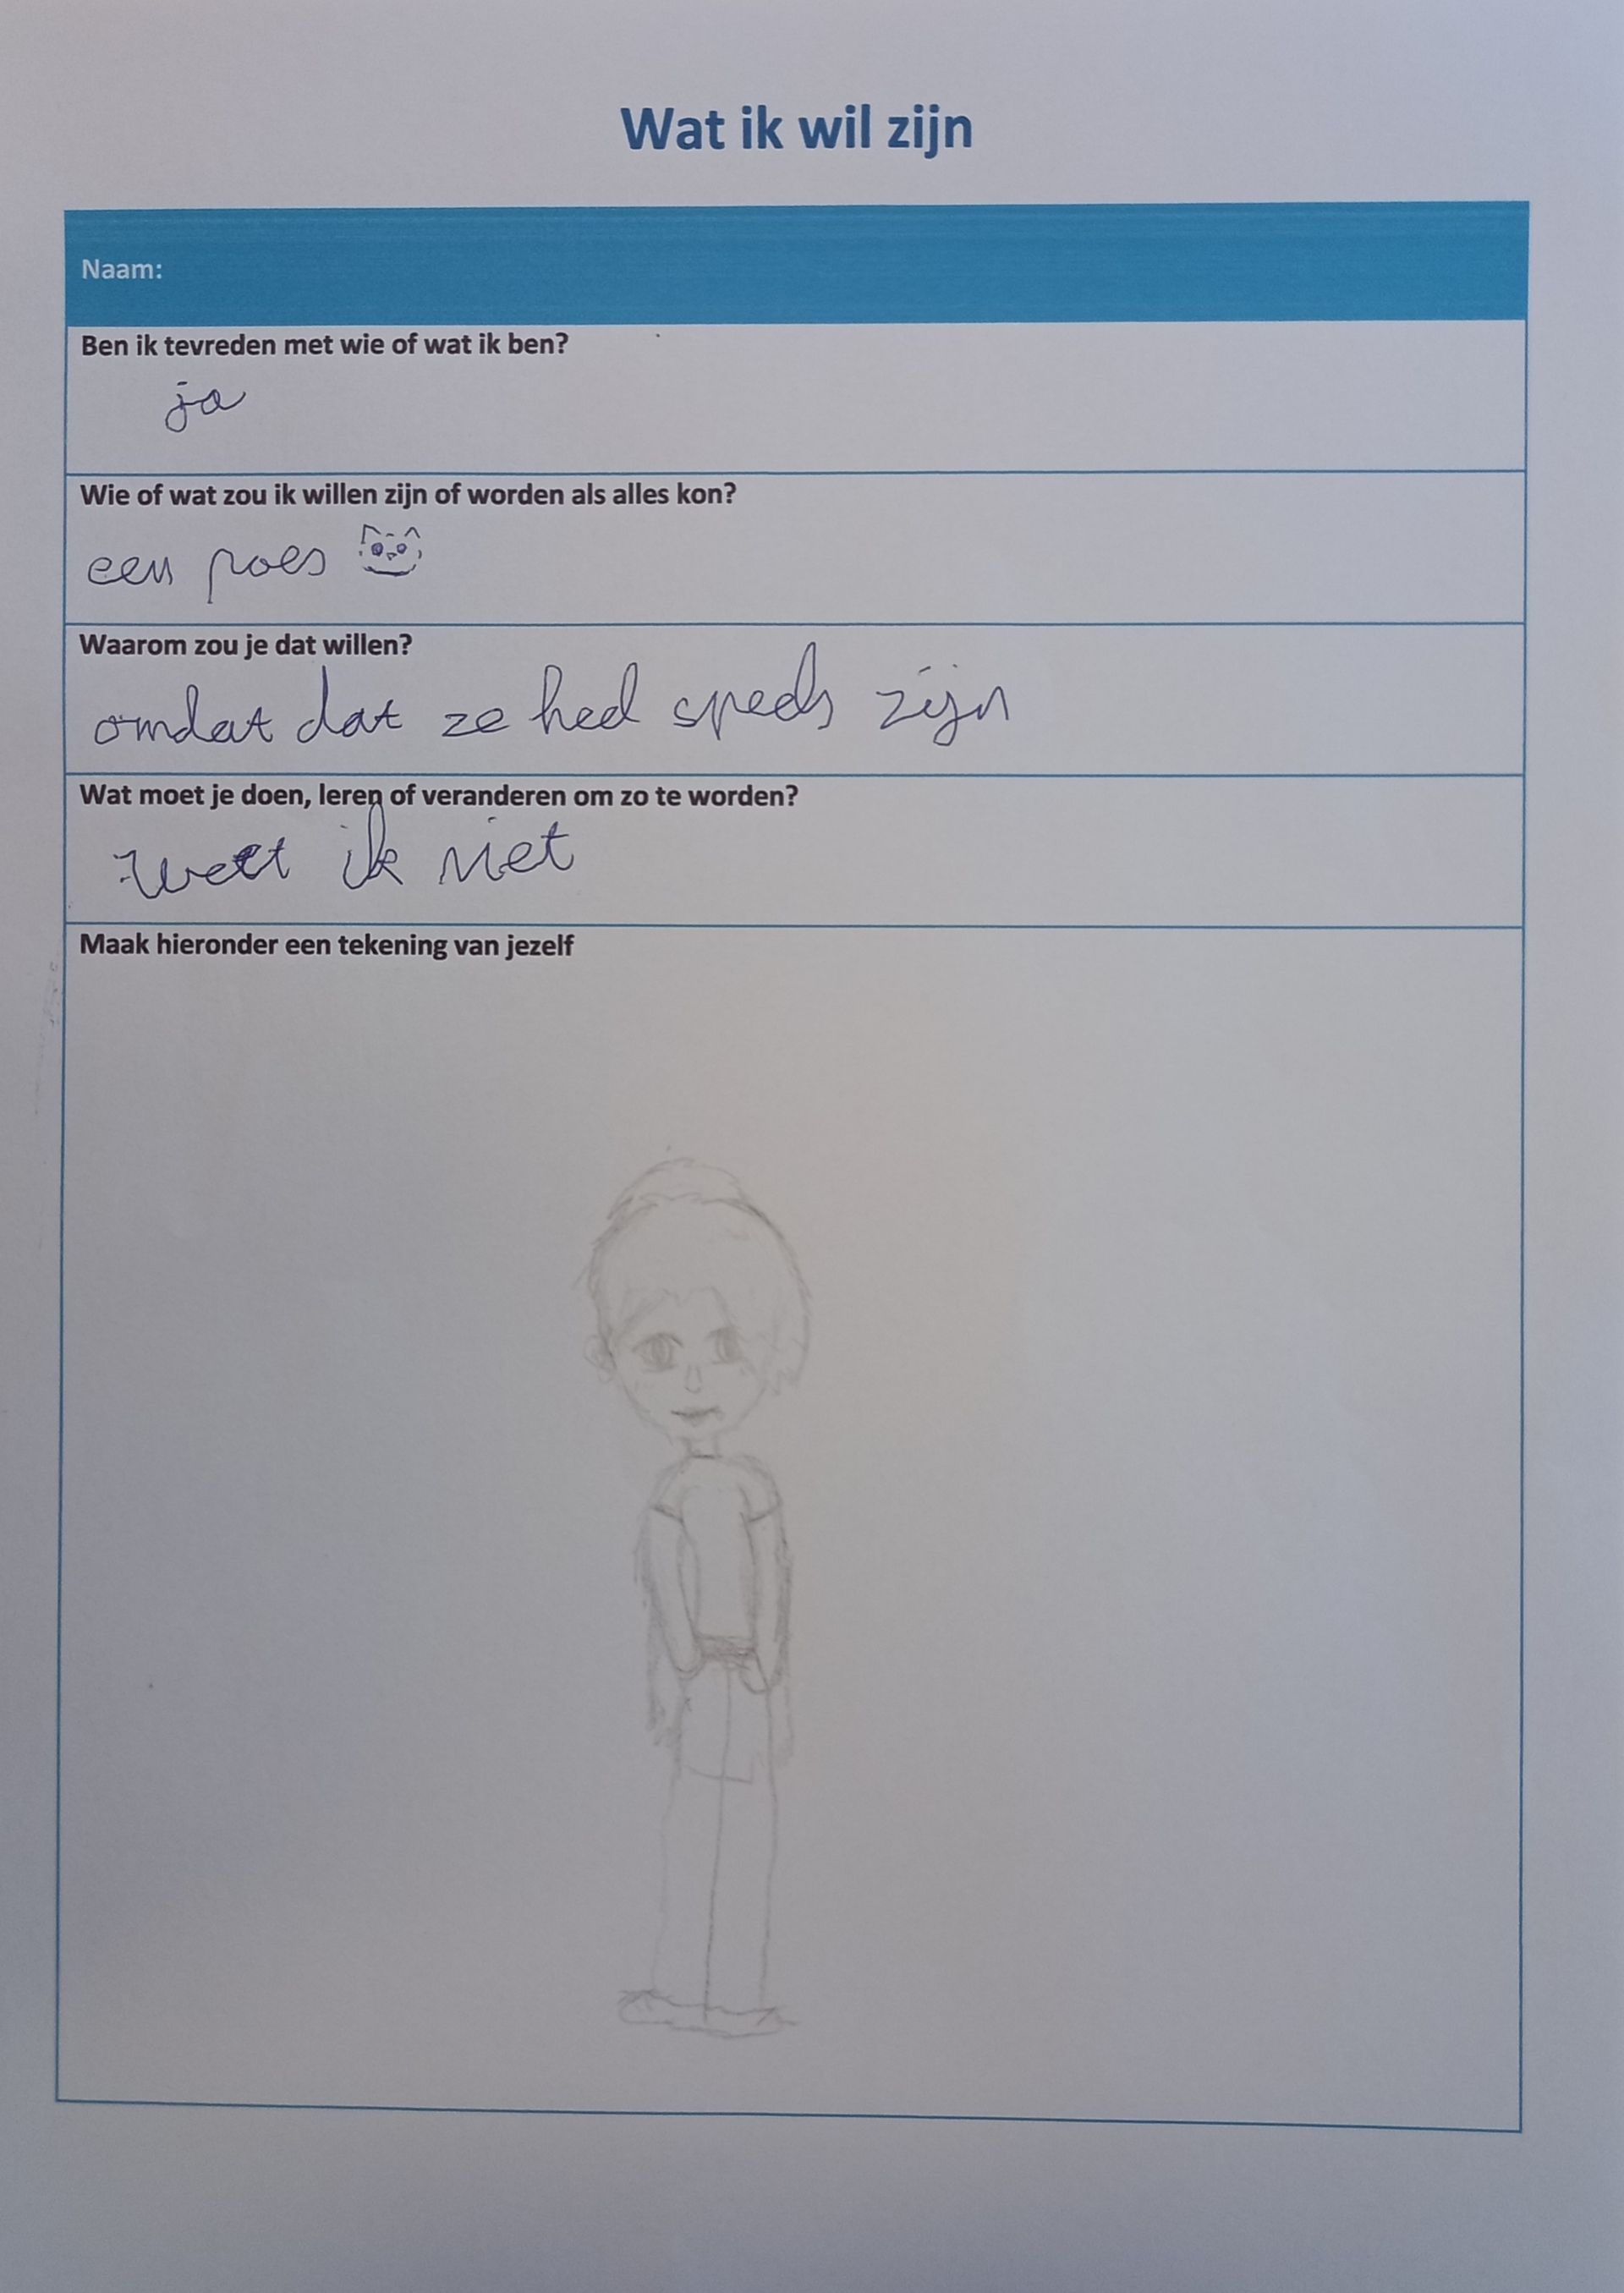 Wat ik wil zijn
Naam:
Ben ik tevreden met wie of wat ik ben?
ja
Wie of wat zou ik willen zijn of worden als alles kon?
een poes
Waarom zou je dat willen?
omdat dat ze heel speels zijn
Wat moet je doen, leren of veranderen om zo te worden?
weet ik niet
Maak hieronder een tekening van jezelf